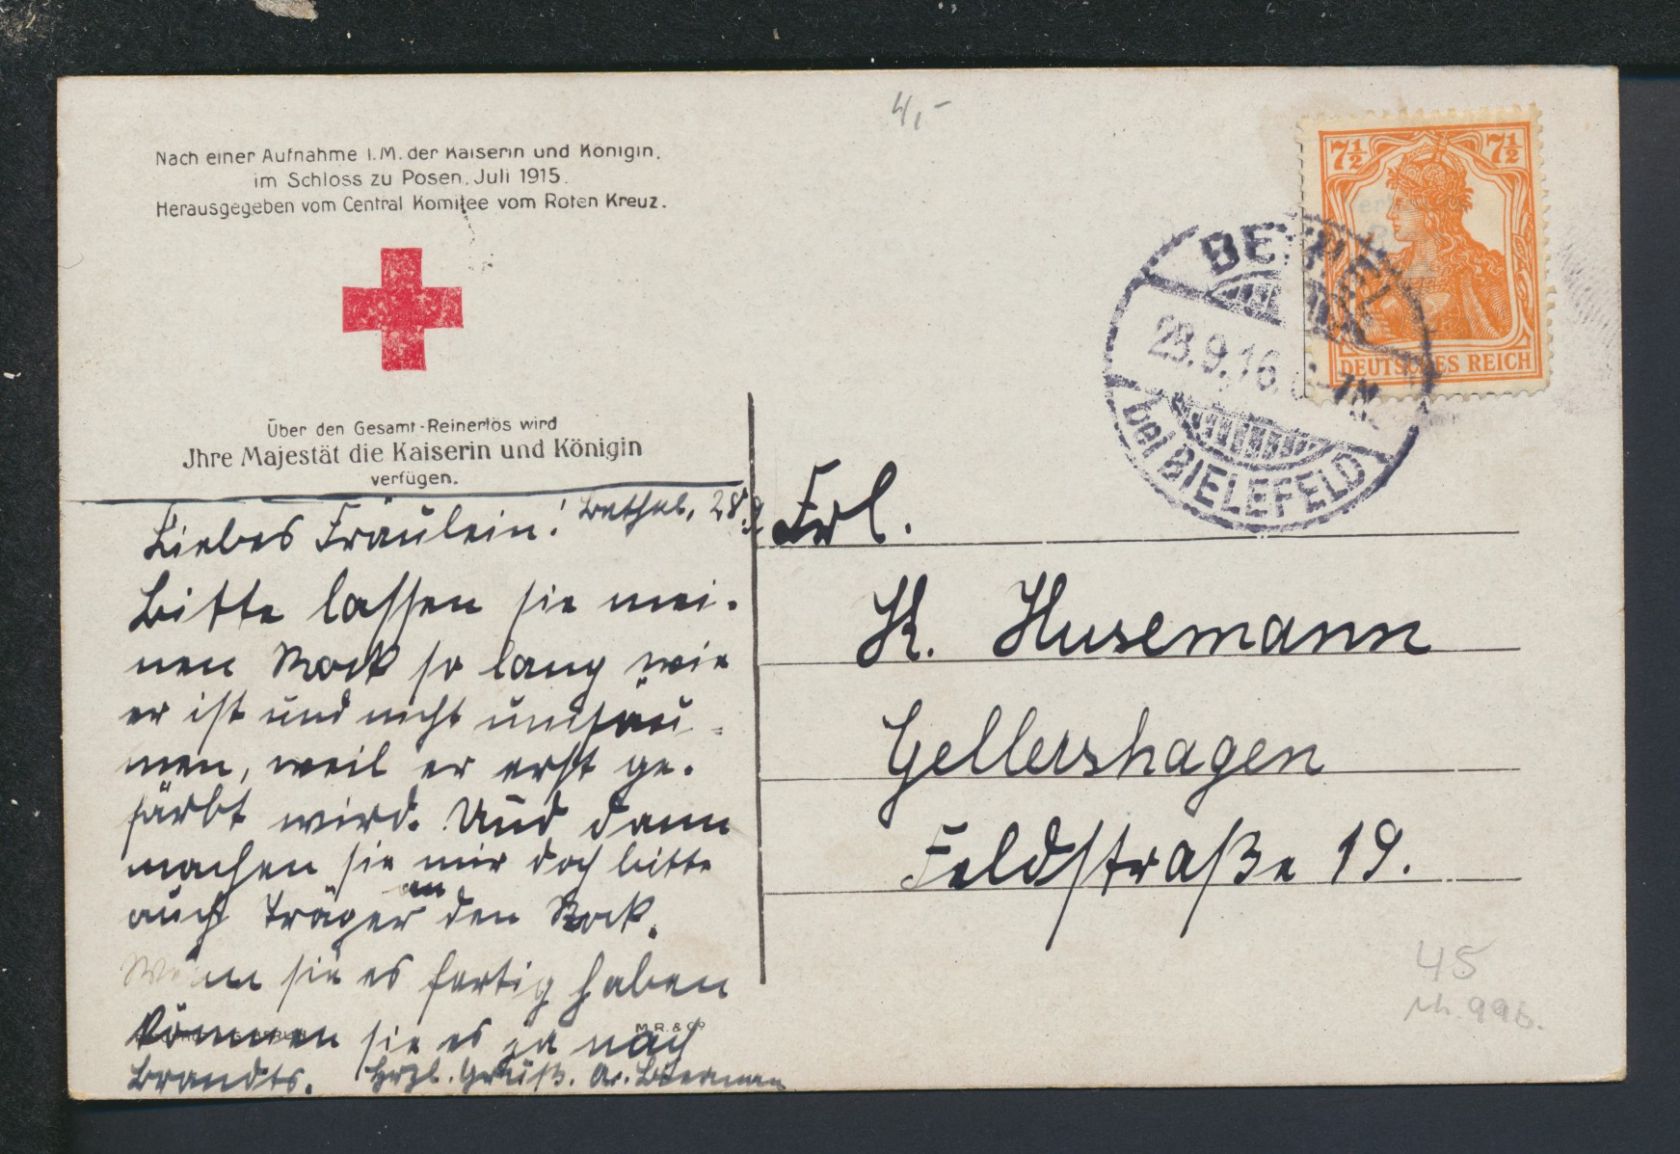 4,-
Nach einer Aufnahme I. M. der Kaiserin und Königin,
im Schloss zu Posen, Juli 1915.
Herausgegeben vom Central Komitee vom Roten Kreuz.
Über den Gesamt-Reinerlös wird
Jhre Majestät die Kaiserin und Königin
verfügen.
7½ 7½
DEUTSCHES REICH
BETHEL
28.9.16
bei BIELEFELD
Bethel, 28.9
Liebes Fräulein!
Bitte lassen sie mei-
nen Rock so lang wie
er ist und nicht umsäu-
men, weil er erst ge-
färbt wird. Und dann
machen sie mir doch bitte
auch Träger an den Rock.
Wenn sie es fertig haben
können sie es ja nach
Brandts. Hrzl. Gruß.
M.R.&Co
Frl.
K. Husemann
Gellershagen
Feldstraße 19.
45